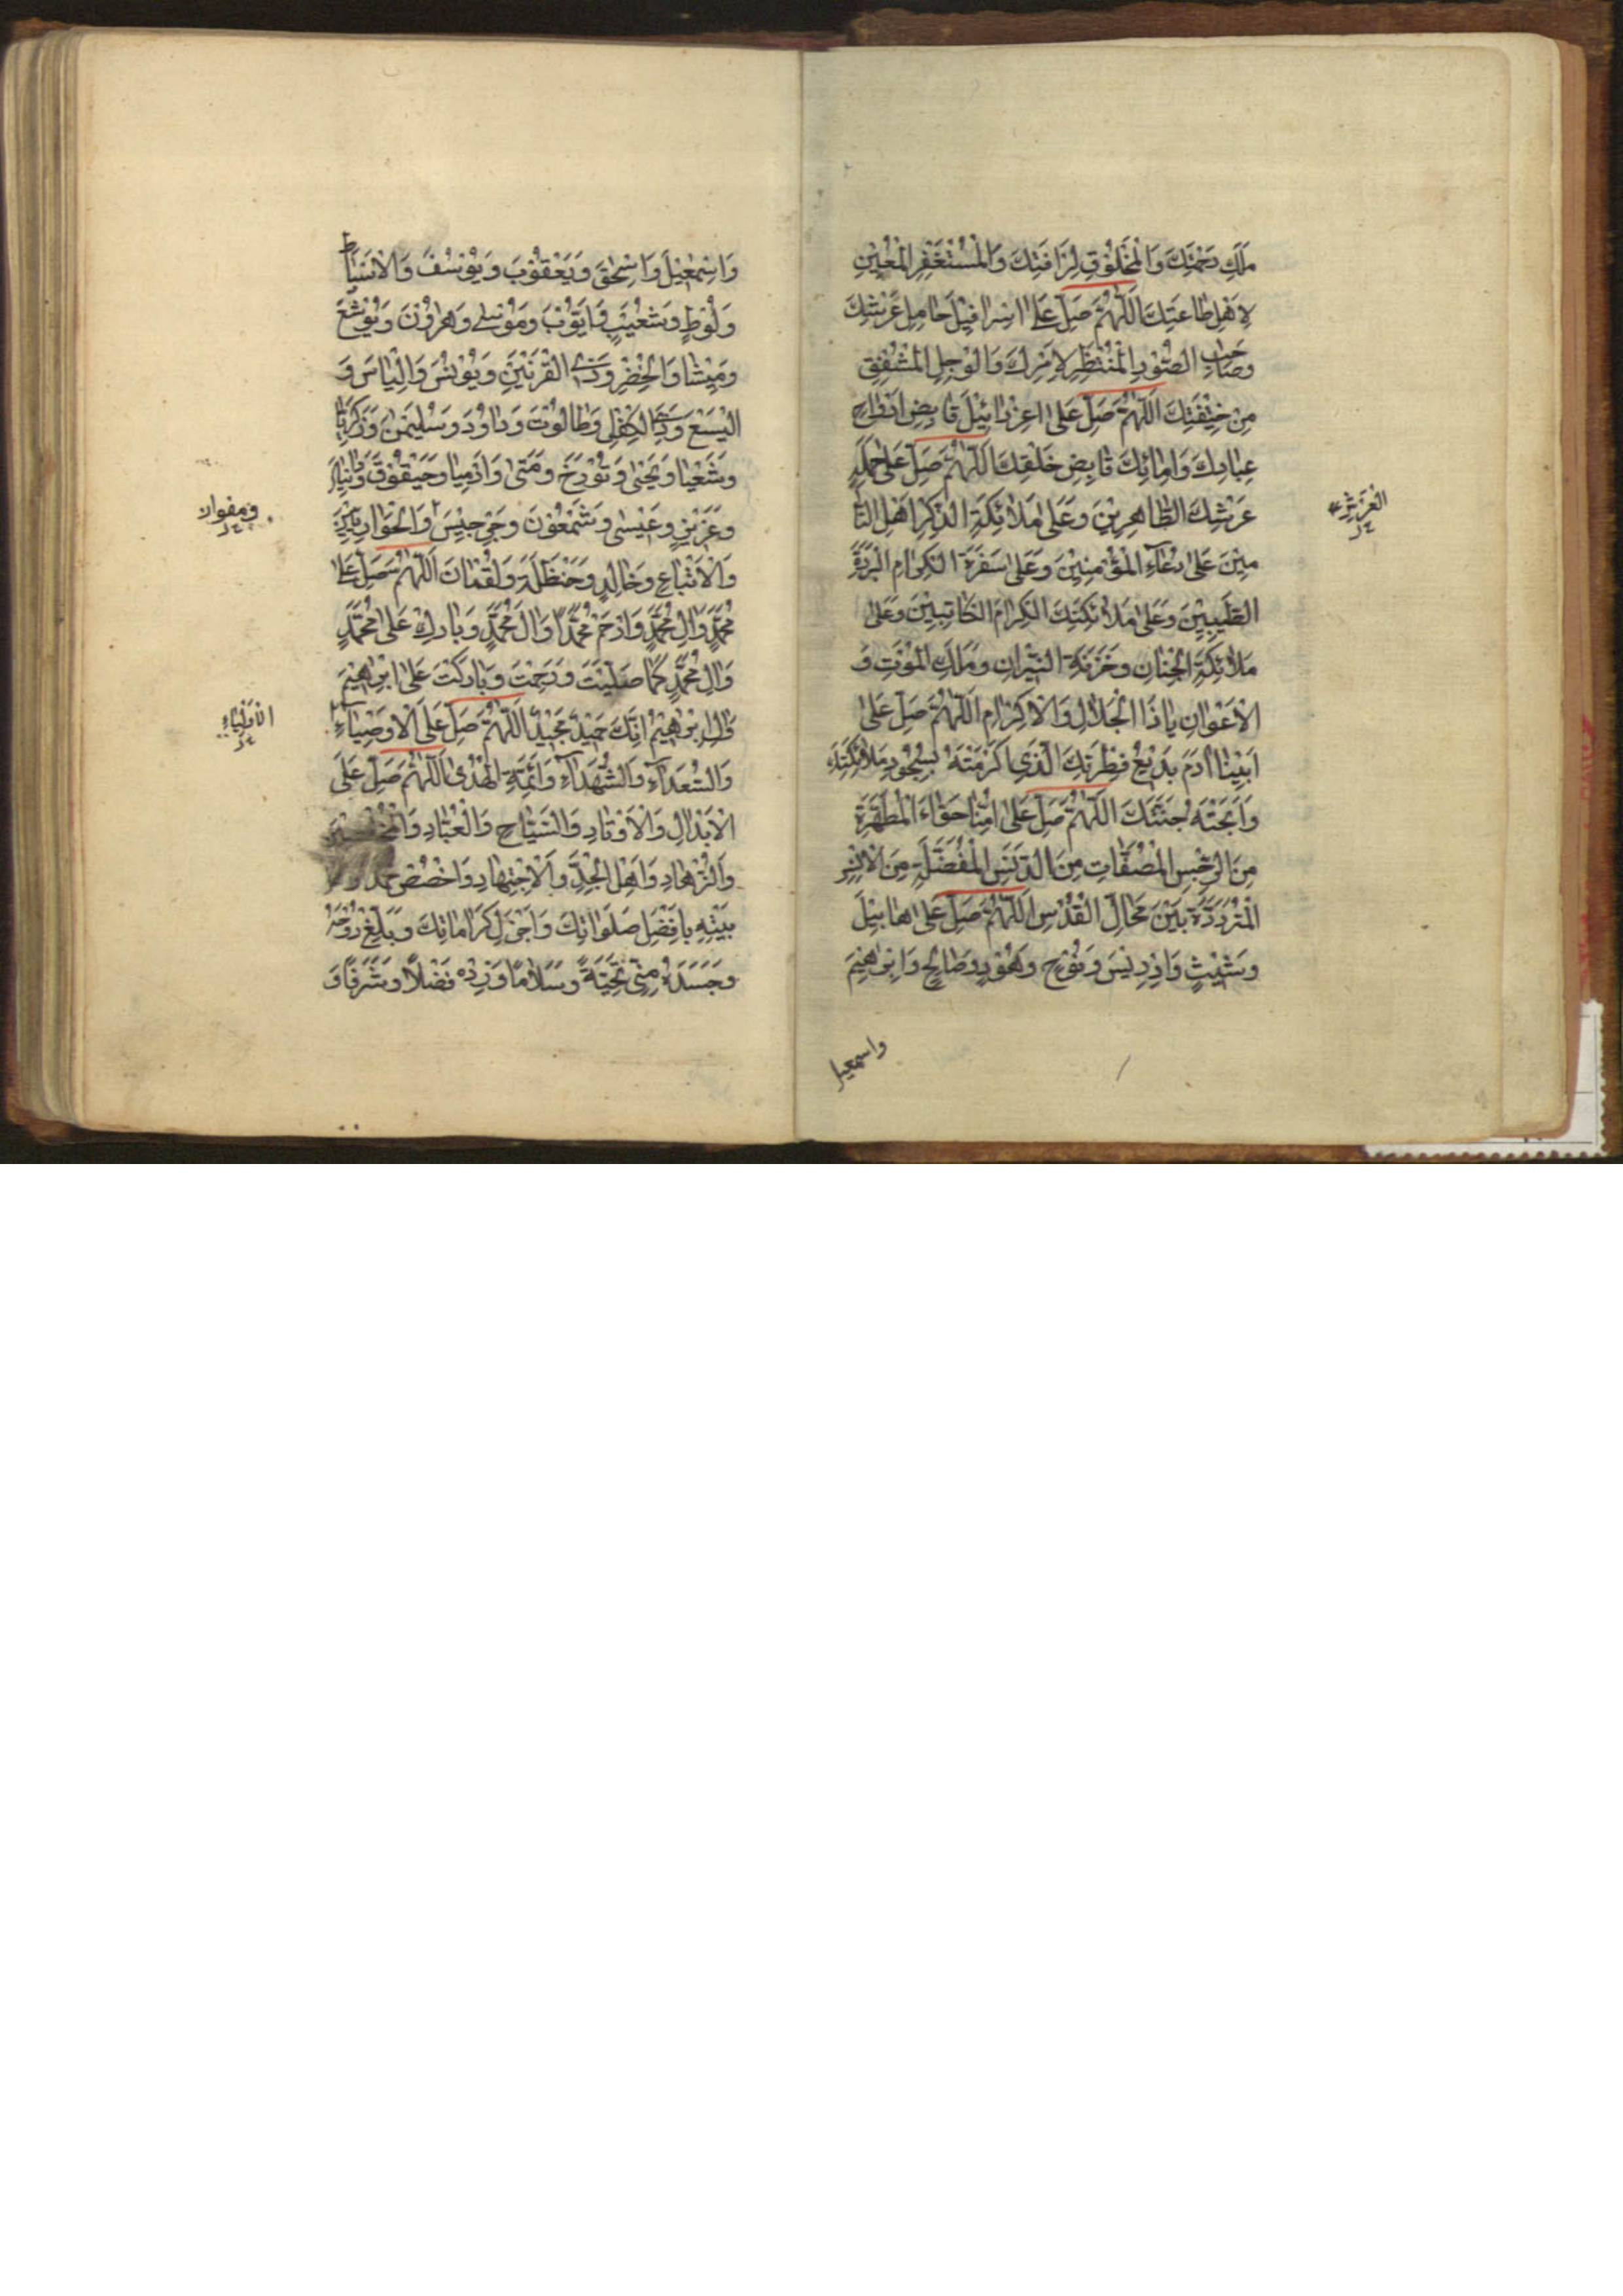 مَلَكِ رَحْمَتِكَ وَالْمَخْلُوْقِ لِرَافَتِكَ وَالْمُسْتَغْفِرِ الْمُعِيْنِ
لِاَهْلِ طَاعَتِكَ اَللّٰهُمَّ صَلِّ عَلٰى اِسْرَافِيْلَ حَامِلِ عَرْشِكَ
وَصَاحِبِ الصُّوْرِ الْمُنْتَظِرِ لِاَمْرِكَ وَالْوَجِلِ الْمُشْفِقِ
مِنْ خِيْفَتِكَ اَللّٰهُمَّ صَلِّ عَلٰى عِزْرَائِيْلَ قَابِضِ اَرْوَاحِ
عِبَادِكَ وَاِمَائِكَ قَابِضِ خَلْقِكَ اَللّٰهُمَّ صَلِّ عَلٰى حَمَلَةِ
عَرْشِكَ الطَّاهِرِيْنَ وَعَلٰى مَلَائِكَةِ الذِّكْرِ اَهْلِ التَّا
مِيْنَ عَلٰى دُعَآءِ الْمُؤْمِنِيْنَ وَعَلٰى سَفَرَةِ الْكِرَامِ الْبَرَرَةِ
الطَّيِّبِيْنَ وَعَلٰى مَلَائِكَتِكَ الْكِرَامِ الْكَاتِبِيْنَ وَعَلٰى
مَلَائِكَةِ الْجِنَانِ وَخَزَنَةِ النِّيْرَانِ وَمَلَكِ الْمَوْتِ وَ
الْاَعْوَانِ يَا ذَا الْجَلَالِ وَالْاِكْرَامِ اَللّٰهُمَّ صَلِّ عَلٰى
اَبِيْنَا اٰدَمَ بَدِيْعِ فِطْرَتِكَ الَّذِيْ كَرَّمْتَهُ بِسُجُوْدِ مَلَائِكَتِكَ
وَاَبَحْتَهُ جَنَّتَكَ اَللّٰهُمَّ صَلِّ عَلٰى اُمِّنَا حَوَّاءَ الْمُطَهَّرَةِ
مِنَ الرِّجْسِ الْمُصَفَّاتِ مِنَ الدَّنَسِ الْمُفَضَّلَةِ مِنَ الْاِنْسِ
الْمُتَرَدِّدَةِ بَيْنَ مَحَالِّ الْقُدُسِ اَللّٰهُمَّ صَلِّ عَلٰى هَابِيْلَ
وَشَيْثٍ وَاِدْرِيْسَ وَنُوْحٍ وَهُوْدٍ وَصَالِحٍ وَاِبْرٰهِيْمَ
واسمعيل
وَاِسْمٰعِيْلَ وَاِسْحٰقَ وَيَعْقُوْبَ وَيُوْسُفَ وَالْاَسْبَاطِ
وَلُوْطٍ وَشُعَيْبٍ وَاَيُّوْبَ وَمُوْسٰى وَهَارُوْنَ وَيُوْشَعَ
وَمِيْشَا وَالْخِضْرِ وَذِي الْقَرْنَيْنِ وَيُوْنُسَ وَاِلْيَاسَ وَ
الْيَسَعَ وَذِي الْكِفْلِ وَطَالُوْتَ وَدَاوُدَ وَسُلَيْمٰنَ وَزَكَرِيَّا
وَشَعْيَا وَيَحْيٰى وَتُوْرَخَ وَمَتّٰى وَاَرْمِيَا وَحَيْقُوْقَ وَدَانِيَالَ
وَعُزَيْرٍ وَعِيْسٰى وَشَمْعُوْنَ وَجِرْجِيْسَ وَالْحَوَارِيِّيْنَ
وَالْاَتْبَاعِ وَخَالِدٍ وَحَنْظَلَةَ وَلُقْمَانَ اَللّٰهُمَّ صَلِّ عَلٰى
مُحَمَّدٍ وَاٰلِ مُحَمَّدٍ وَارْحَمْ مُحَمَّدًا وَاٰلَ مُحَمَّدٍ وَبَارِكْ عَلٰى مُحَمَّدٍ
وَاٰلِ مُحَمَّدٍ كَمَا صَلَّيْتَ وَرَحِمْتَ وَبَارَكْتَ عَلٰى اِبْرٰهِيْمَ
وَاٰلِ اِبْرٰهِيْمَ اِنَّكَ حَمِيْدٌ مَجِيْدٌ اَللّٰهُمَّ صَلِّ عَلَى الْاَوْصِيَآءِ
وَالسُّعَدَآءِ وَالشُّهَدَآءِ وَاَئِمَّةِ الْهُدٰى اَللّٰهُمَّ صَلِّ عَلَى
الْاَبْدَالِ وَالْاَوْتَادِ وَالسُّيَّاحِ وَالْعُبَّادِ وَالْمُخْلِصِيْنَ
وَالزُّهَّادِ وَاَهْلِ الْجِدِّ وَالْاِجْتِهَادِ وَاخْصُصْ مُحَمَّدًا
بَيْتِهِ بِاَفْضَلِ صَلَوَاتِكَ وَاَجْزَلِ كَرَامَاتِكَ وَبَلِّغْ رُوْحَهُ
وَجَسَدَهُ مِنِّيْ تَحِيَّةً وَسَلَامًا وَزِدْهُ فَضْلًا وَشَرَفًا وَ